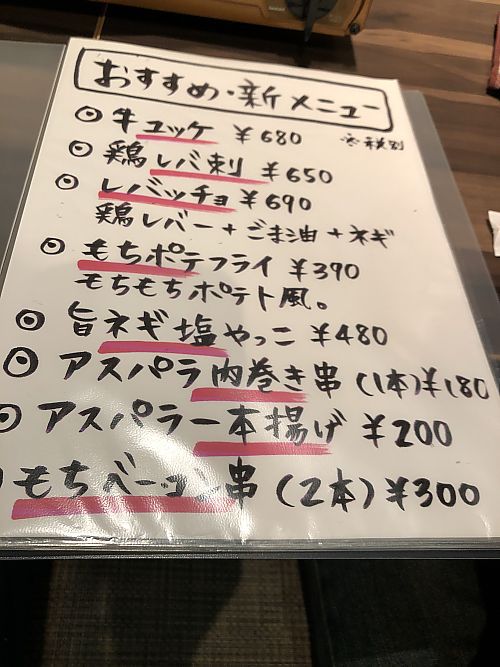 おすすめ・新メニュー
※税別
◎ 牛ユッケ ¥680
◎ 鶏レバ刺 ¥650
◎ レバッチョ ¥690
鶏レバー+ごま油+ネギ
◎ もちポテフライ ¥390
もちもちポテト風。
◎ 旨ネギ塩やっこ ¥480
◎ アスパラ肉巻き串(1本)¥180
◎ アスパラ一本揚げ ¥200
◎ もちベーコン串(2本)¥300